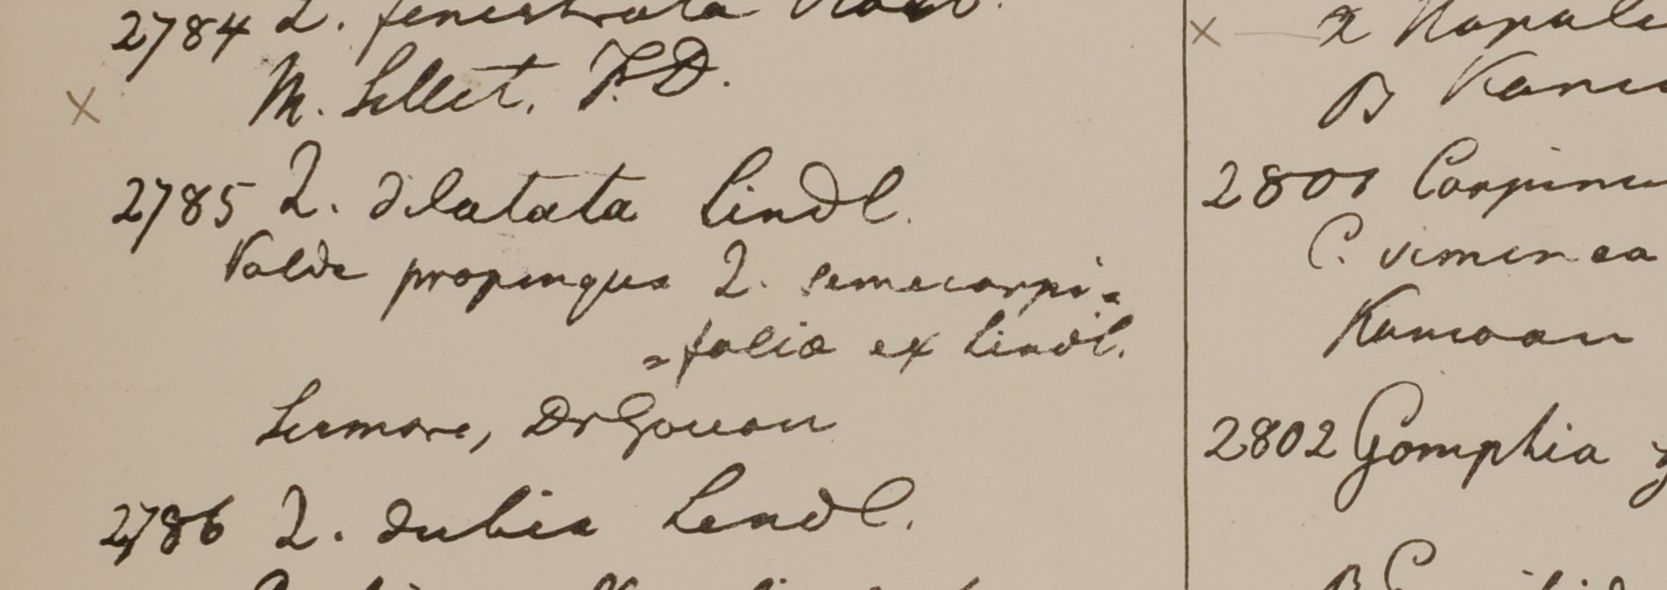 2784 Q. fenestrata Roxb.
M. Sillet, F.D.
2785 Q. dilatata Lindl.
Valde propinqua Q. semecarpi=
=folia ex Lindl.
Sirmore, Dr Govan
2786 Q. dubia Lindl.
x
B
2801 Carpinu
C. viminea
Kamoan
2802 Gomphia
B